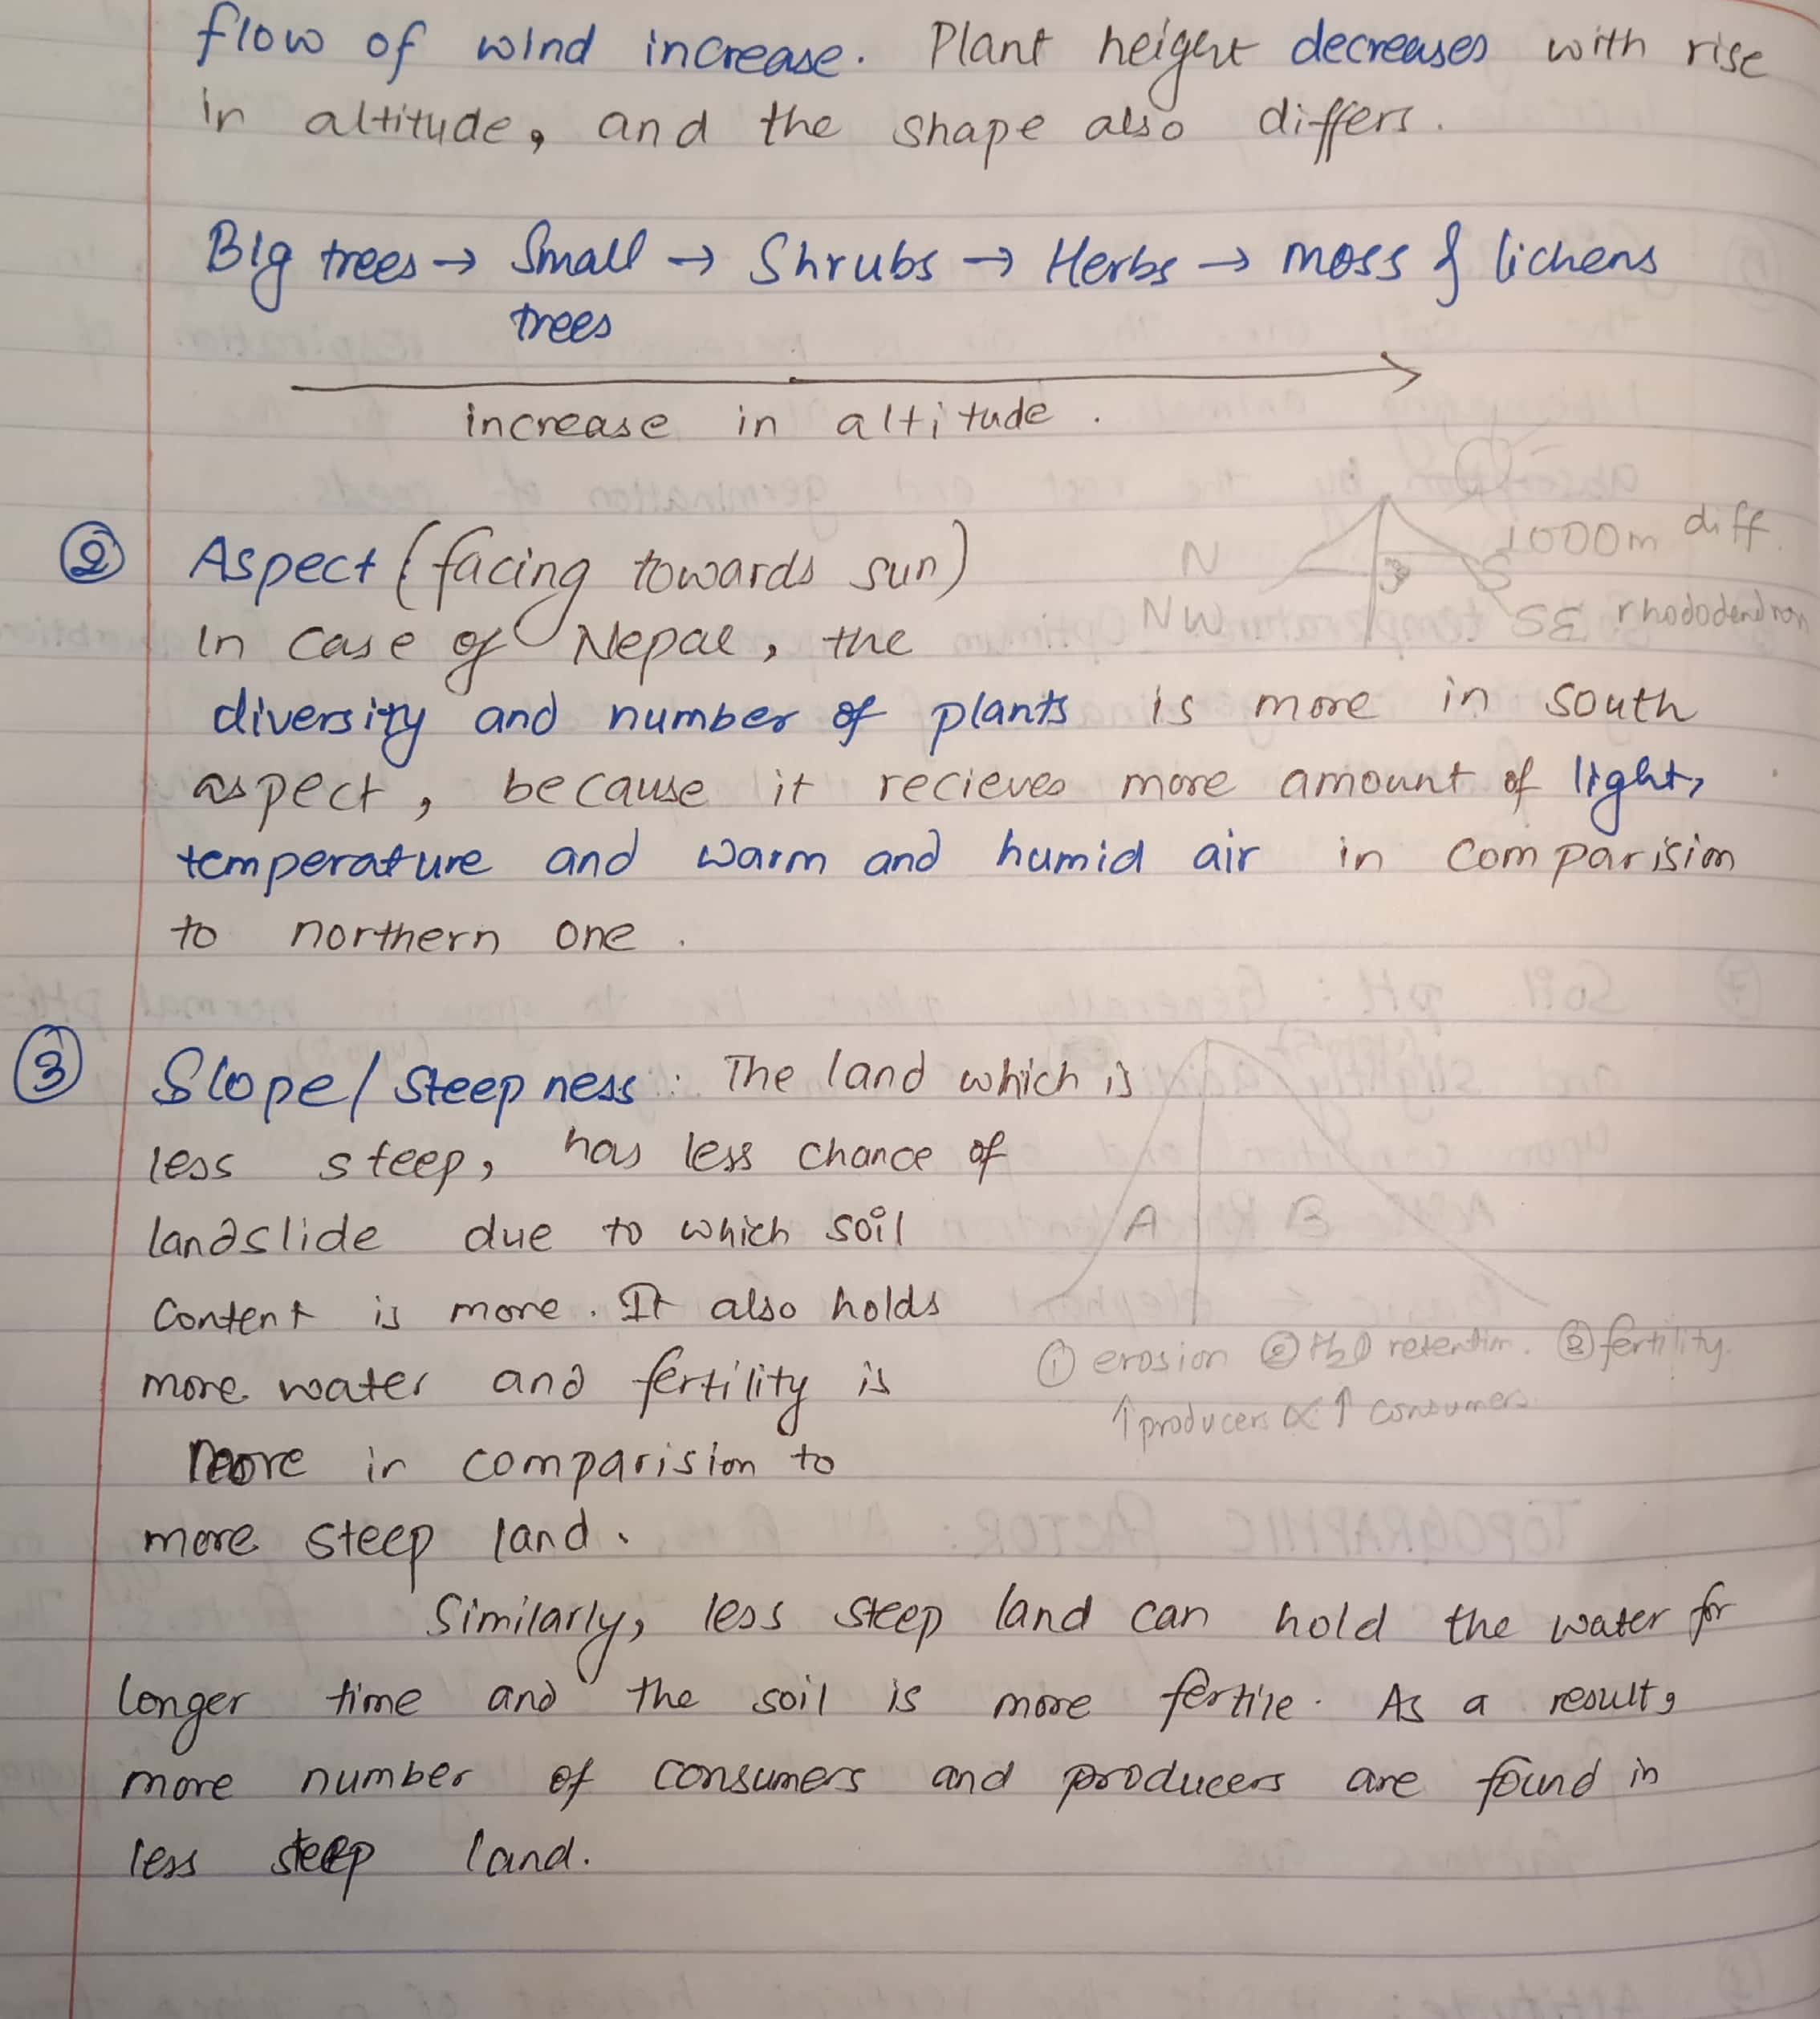 flow of wind increase. Plant height decreases with rise
in altitude, and the shape also differs.
Big trees → Small → Shrubs → Herbs → moss & lichens
trees
increase in altitude.
② Aspect (facing towards sun)
N
S
1000m diff.
NW
SE rhododendron
In case of Nepal, the
diversity and number of plants is more in south
aspect, because it recieves more amount of light,
temperature and warm and humid air in comparision
to northern one.
③ Slope/steepness: The land which is
less steep, has less chance of
landslide due to which soil
content is more. It also holds
more water and fertility is
more in comparision to
more steep land.
A B
① erosion ② H2O retention. ③ fertility.
↑producers ∝ ↑ consumers
Similarly, less steep land can hold the water for
longer time and the soil is more fertile. As a result,
more number of consumers and producers are found in
less steep land.